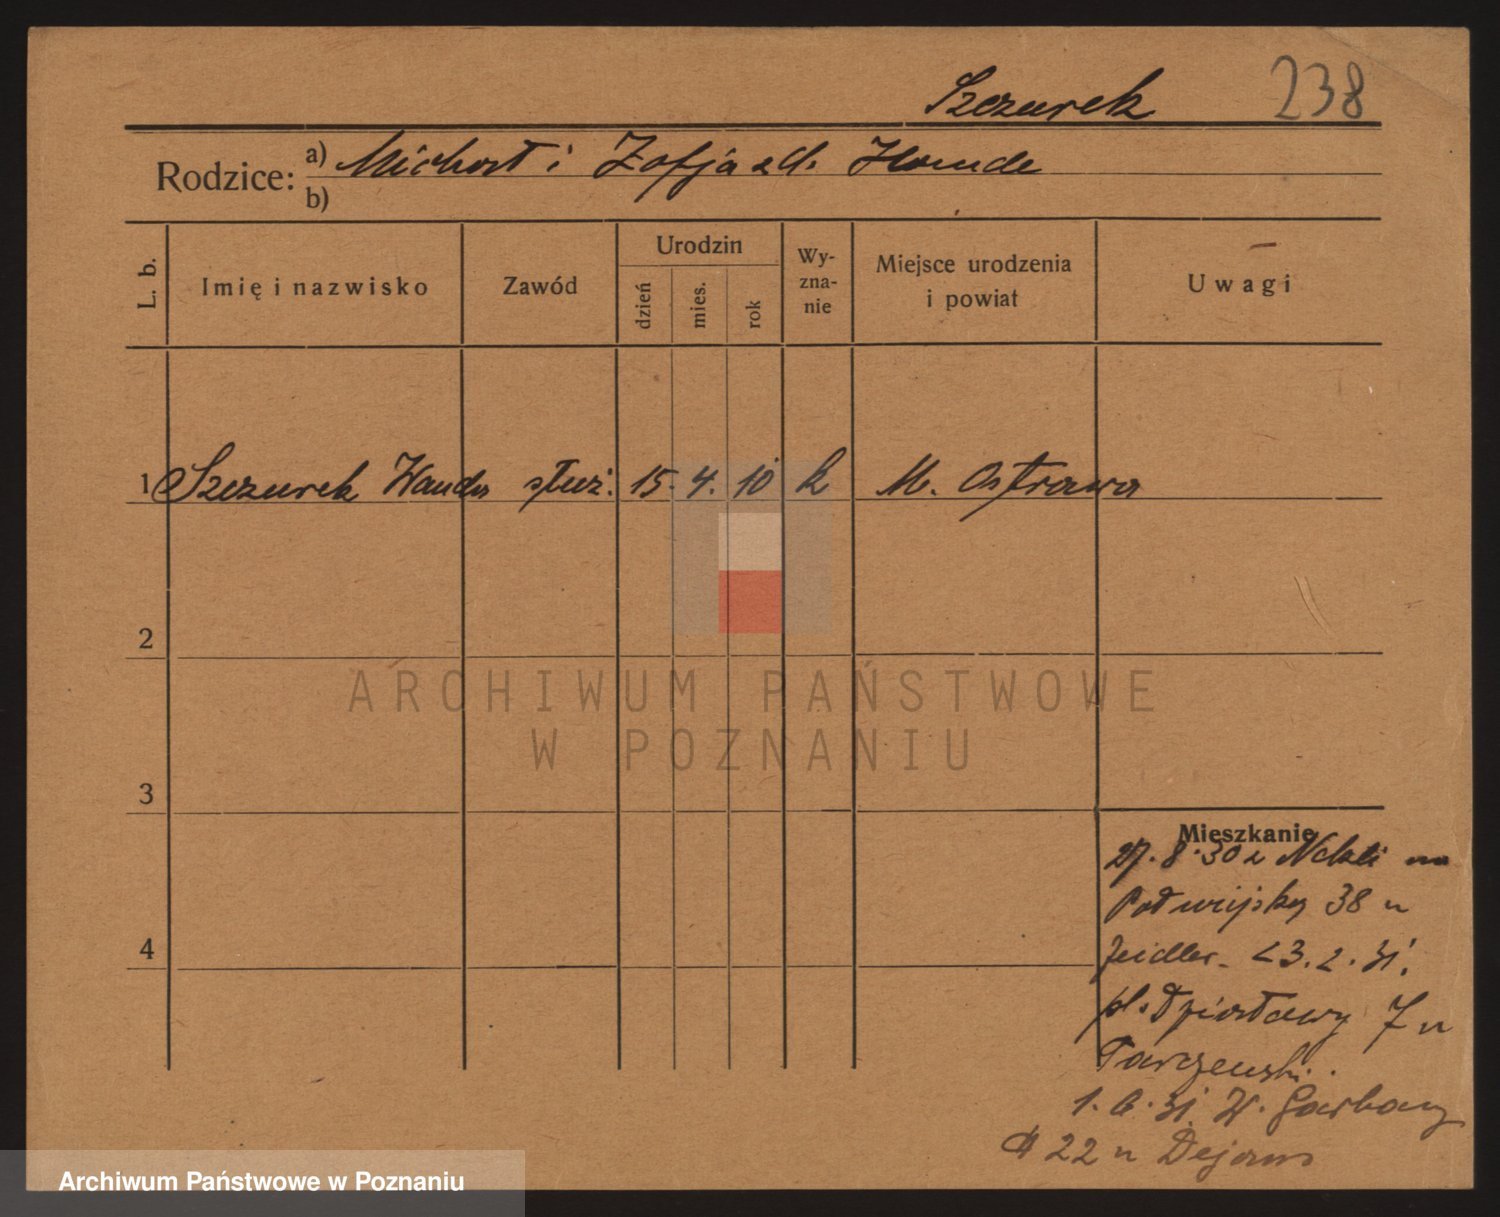 Szczurek 238
Rodzice: a) Michał i Zofja z d.
b)
L. b. Imię i nazwisko Zawód Urodzin dzień mies. rok Wy-zna-nie Miejsce urodzenia i powiat Uwagi
1 Szczurek Wanda służ. 15. 4. 10 k M. Ostrawa
2
3
4
Mieszkanie
27. 8. 30 z Nakli na
Podwijsky 38 u
Zeidler. 23. 2. 31.
pl. Działowy 7 u
Tarczewski.
1. 6. 31. W. Garbary
22 u
ARCHIWUM PAŃSTWOWE
W POZNANIU
Archiwum Państwowe w Poznaniu